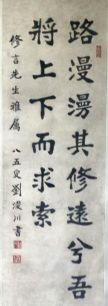 路漫漫其修遠兮吾
將上下而求索
修言先生雅屬
八五叟劉浚川書